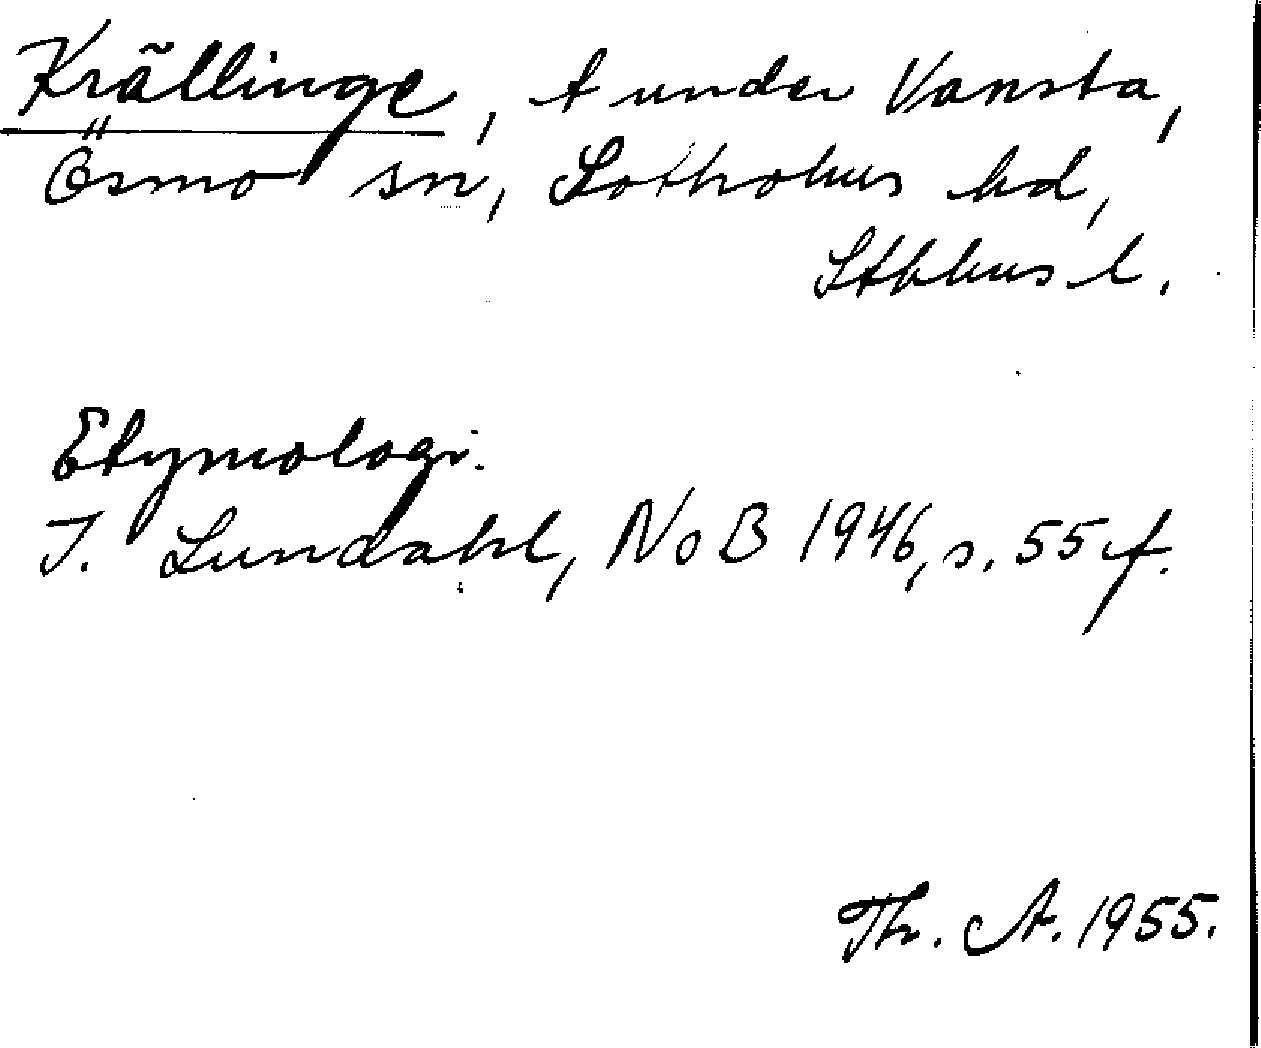 Krällinge, t under Vansta,
Ösmo sn, Sotholms hd,
Sthlms l.
Etymologi.
I. Lundahl, NoB 1946, s. 55 f.
Th. A. 1955.